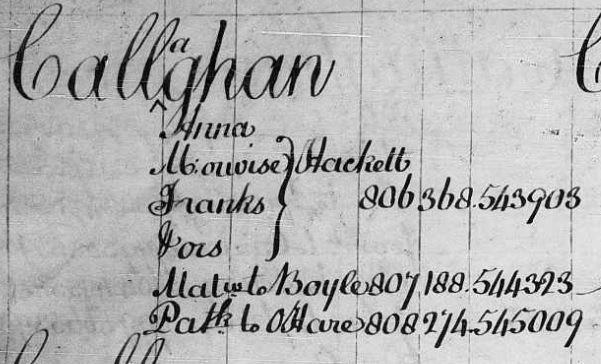 Callaghan
Anna
M. owise } Hackett
Franks } 806 368.543903
Vors }
Matw to Boyle 807 188.544323
Patk to OHare 808 274.545009